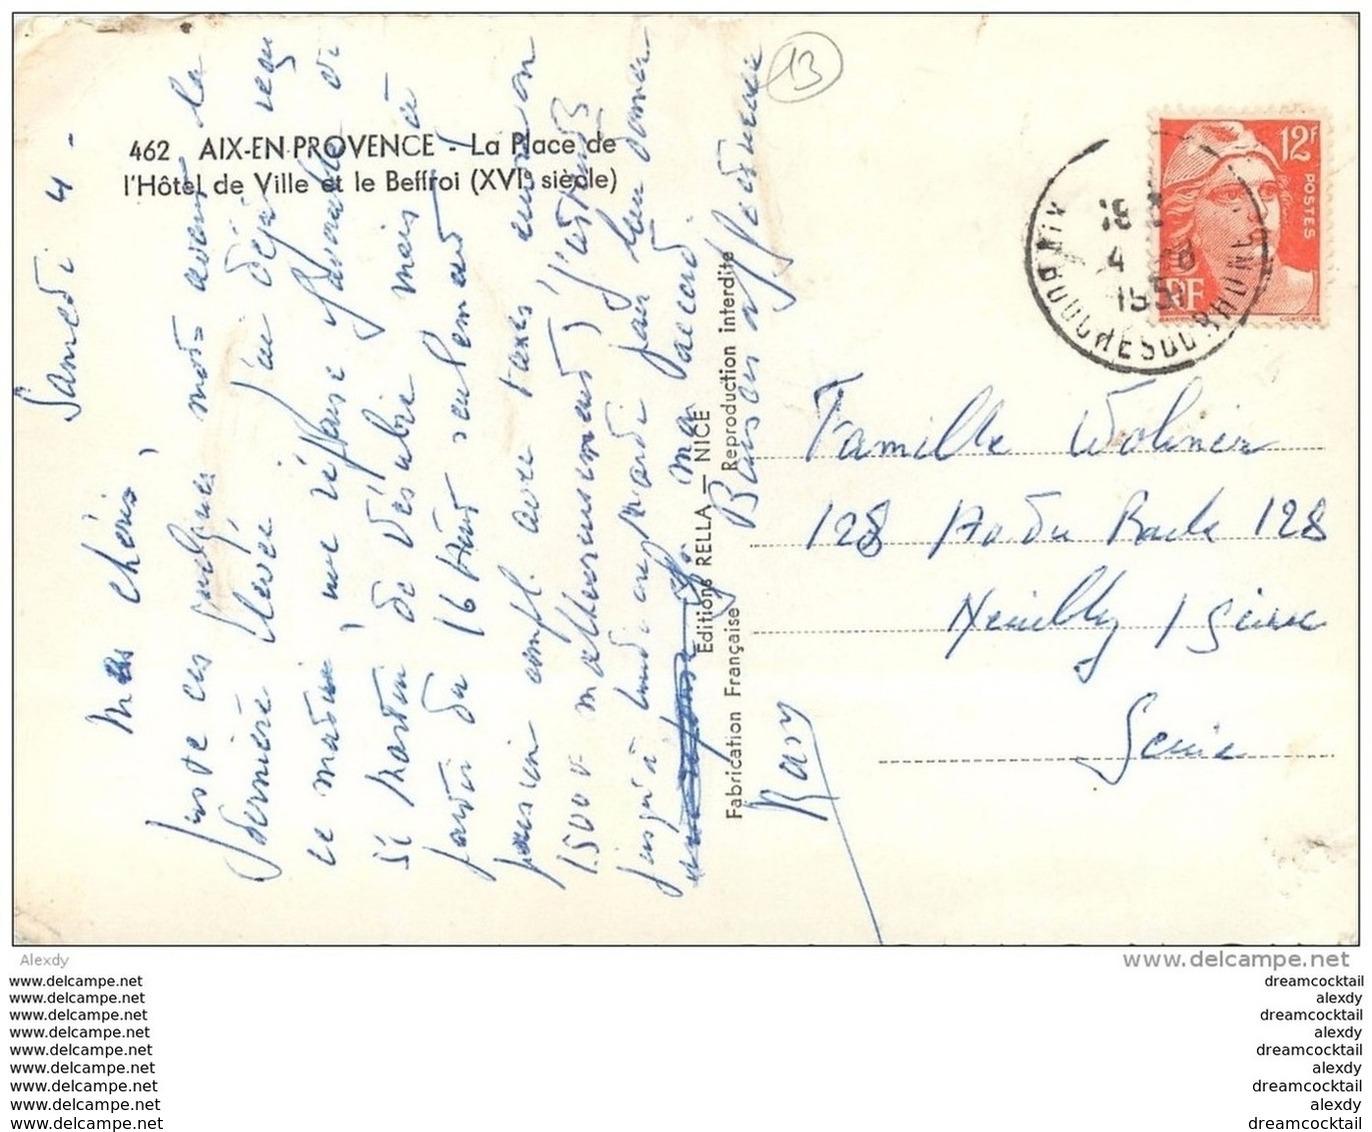 13
462 AIX-EN-PROVENCE - La Place de
l'Hôtel de Ville et le Beffroi (XVIe siècle)
Samedi 4 -
Mes chéris,
Juste ces quelques mots avant la
dernière levée, j'ai déjà reçu
ce matin, une réponse favorable de
St Martin de Vésubie mais à
partir du 16 Août seulement !
pension compl. avec taxes, environ
1500 malheureusement j'attends
jusqu'à lundi
ma
Bons
Rary
Editions RELLA — NICE
Fabrication Française Reproduction interdite
12F
POSTES
RF
AIX
4 -8
1951
BOUCHES DU RHONE
Famille Woliner
128 Bd du 128
Neuilly s/ Seine
Seine
Alexdy
www.delcampe.net
www.delcampe.net
www.delcampe.net
www.delcampe.net
www.delcampe.net
www.delcampe.net
www.delcampe.net
www.delcampe.net
www.delcampe.net
www.delcampe.net
dreamcocktail
alexdy
dreamcocktail
alexdy
dreamcocktail
alexdy
dreamcocktail
alexdy
dreamcocktail